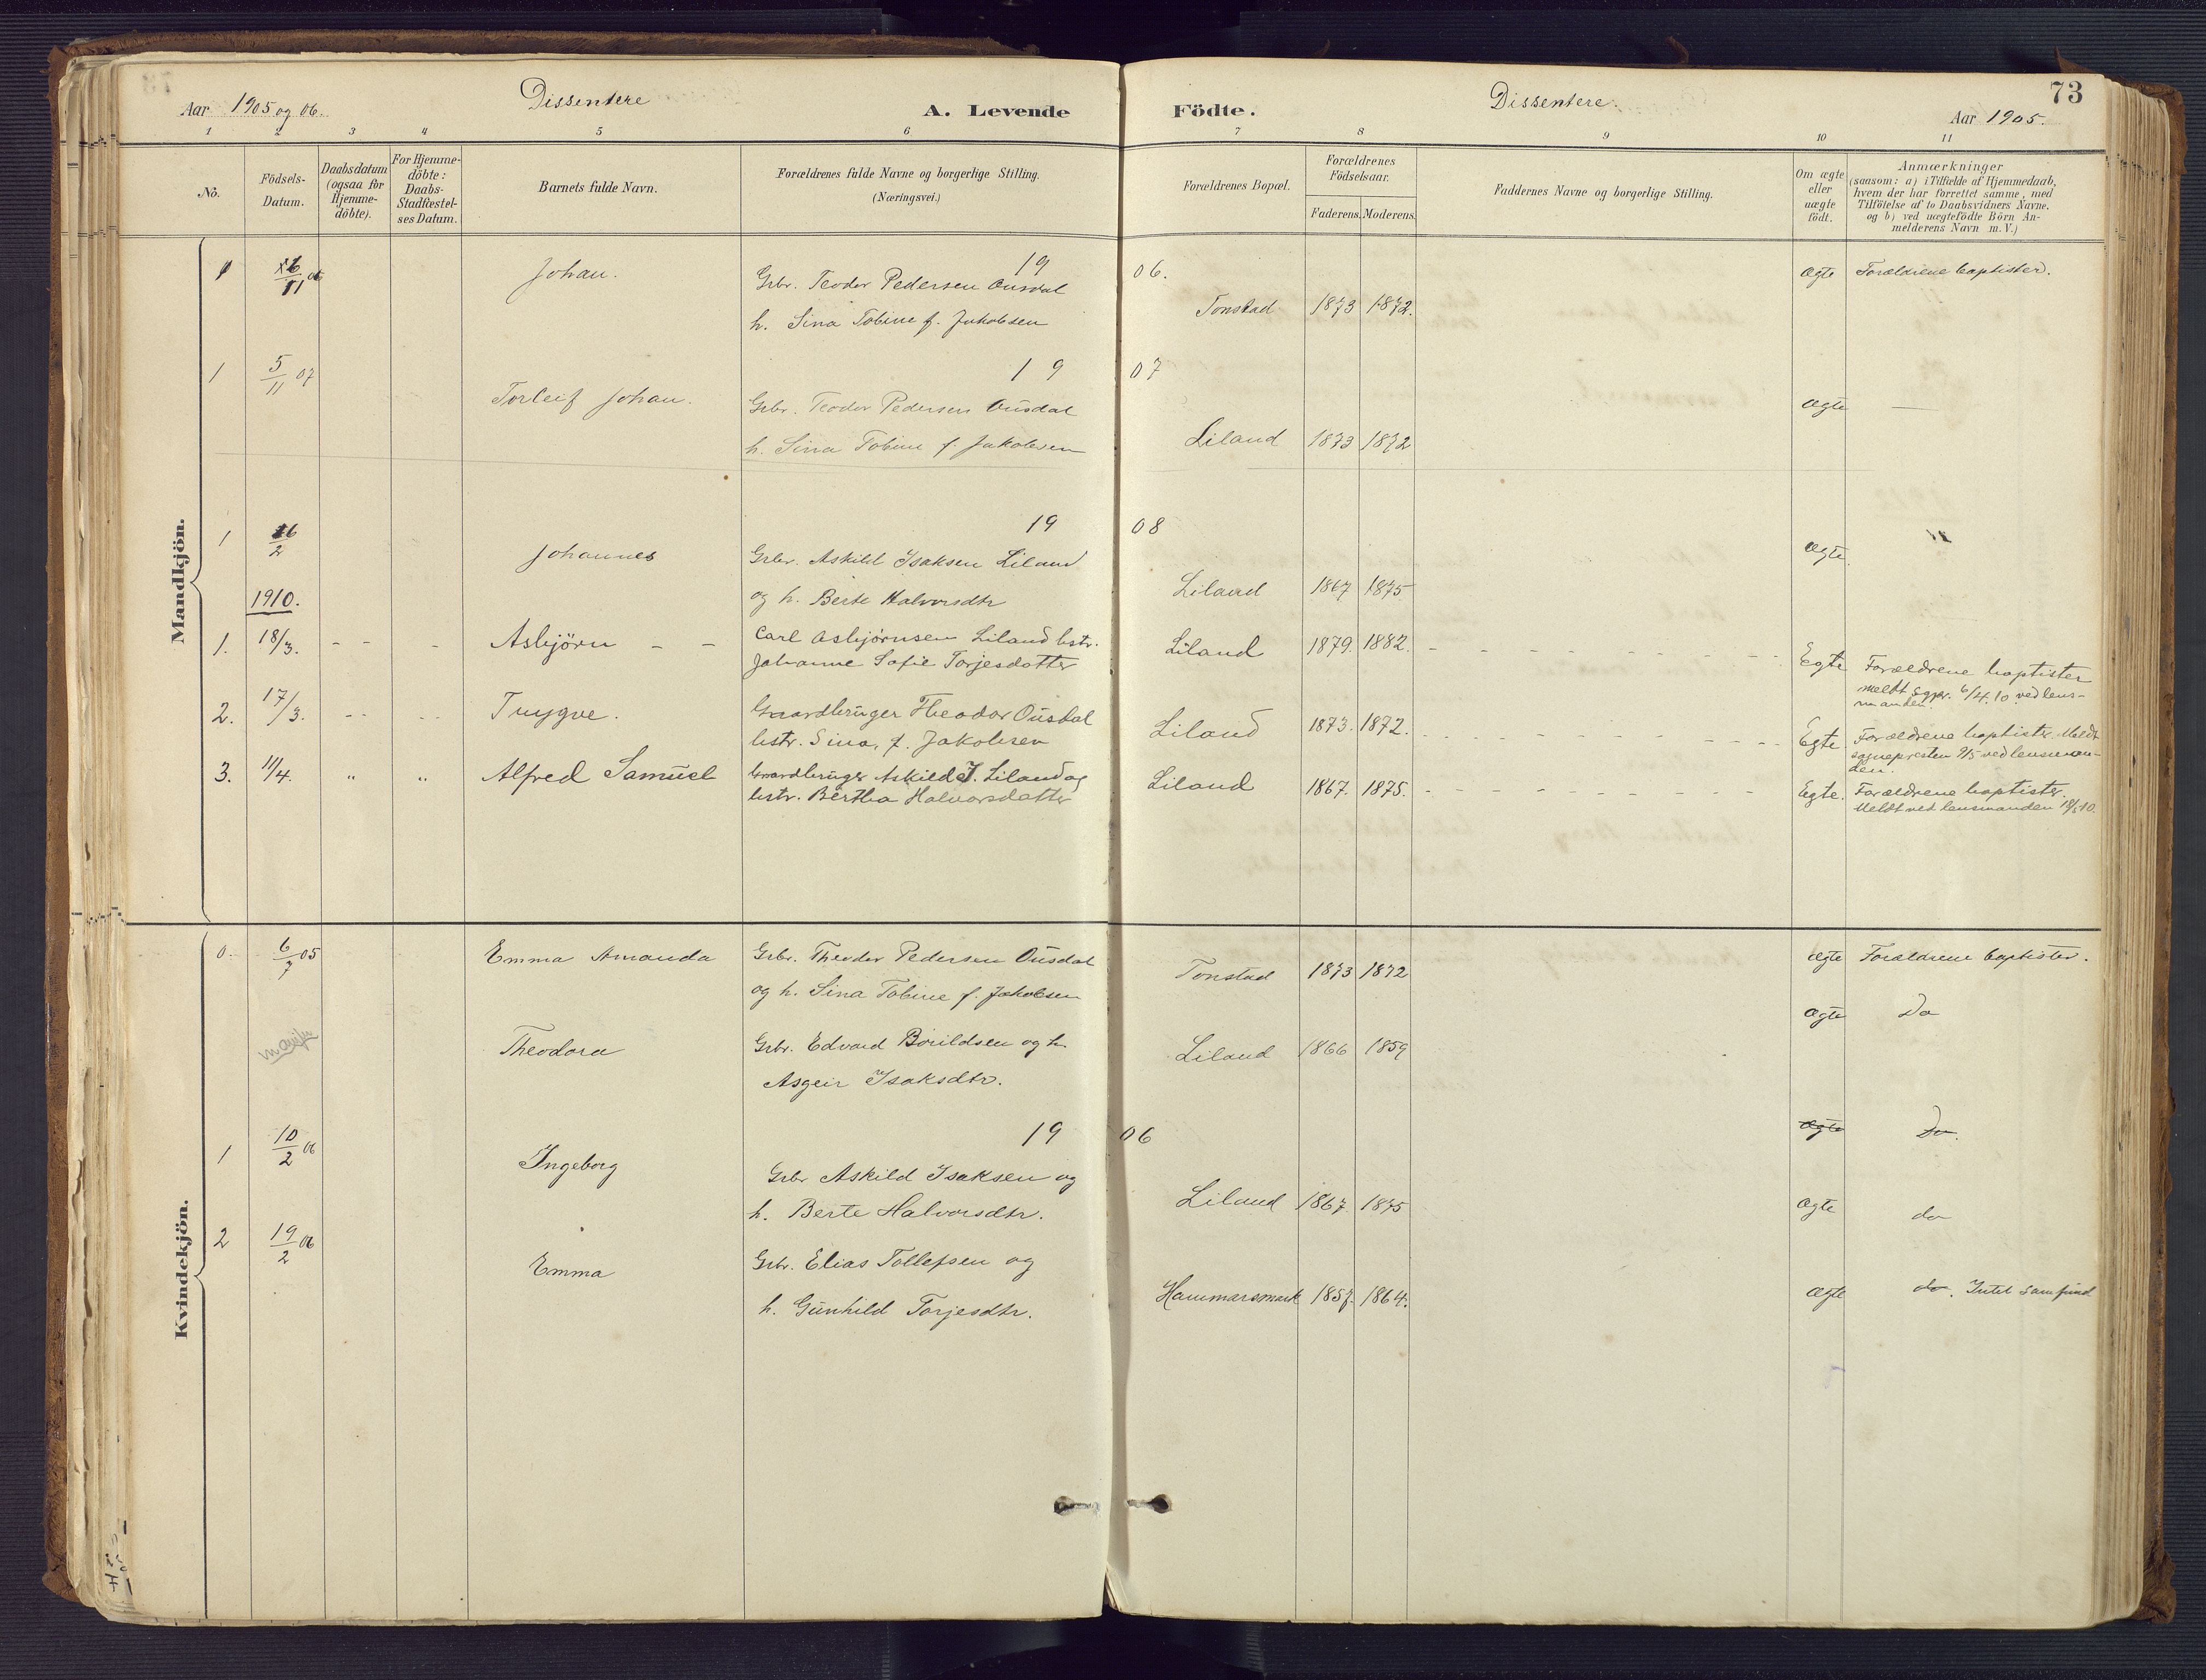 Aar 1905 og 06.
Dissentere
A. Levende
Födte.
Dissentere.
73
Aar 1905.
1 2 3 4 5 6 7 8 9 10 11
No.
Födsels-
Datum.
Daabsdatum
(ogsaa for
Hjemme-
döbte).
For Hjemme-
döbte:
Daabs-
Stadfæstel-
ses Datum.
Barnets fulde Navn.
Forældrenes fulde Navne og borgerlige Stilling.
(Næringsvei.)
Forældrenes Bopæl.
Forældrenes
Födselsaar.
Faderens. Moderens.
Faddernes Navne og borgerlige Stilling.
Om ægte
eller
uægte
födt.
Anmærkninger
(saasom: a) i Tilfælde af Hjemmedaab,
hvem der har forrettet samme, med
Tilföielse af to Daabsvidners Navne.
og b) ved uægtefödte Börn An-
melderens Navn m. V.)
Mandkjön.
19 06.
1 6/11 06 Johan. Grbr. Teodor Pedersen Ousdal
h. Sina Tobine f. Jakobsen Tonstad 1873 1872. ægte Forældrene baptister.
19 07
1 5/11 07 Torleif Johan. Grbr. Teodor Pedersen Ousdal
h. Sina Tobine f. Jakobsen Liland 1873 1872 ægte —
19 08
1 16/2 Johannes Grbr. Askild Isaksen Liland
og h. Berte Halvorsdtr Liland 1867 1875 ægte.
1910.
1. 18/3. - - - Asbjörn - - Carl Asbjørnsen Liland hstr.
Johanne Sofie Torjesdotter Liland 1879. 1882. Egte Forældrene baptister
meldt sgpr. 6/4.10 ved lens-
manden.
2. 17/3. - - - - Trygve. Gaardbruger Theodor Ousdal
hstr. Sina, f. Jakobsen Liland 1873. 1872. Egte. Forældrene baptister. Meldt
sognepresten 9/5 ved lensman-
den.
3. 11/4. " " Alfred Samuel Gaardbruger Askild J. Liland og
hstr. Bertha Halvorsdatter Liland 1867. 1875. Egte. Forældrene baptister.
Meldt ved lensmanden 18/5 10.
Kvindekjön.
0. 6/7 05 Emma Amanda Grbr. Theodor Pedersen Ousdal
og h. Sina Tobine f. Jakobsen Tonstad 1873 1872 ægte Forældrene baptister.
Theodora Grbr. Edvard Bouildsen og h.
Asgeir Isaksdtr. Liland 1866 1859 ægte Do
19 06
ægte Do.
1 10/2 06 Ingeborg Grbr Askild Isaksen og
h. Berte Halvorsdtr. Liland 1867 1875 ægte do
2 19/2 06 Emma Grbr. Elias Tollefsen og
h. Gunhild Torjesdtr. Hammarsmark 1857. 1864. ægte do. Intet samfund